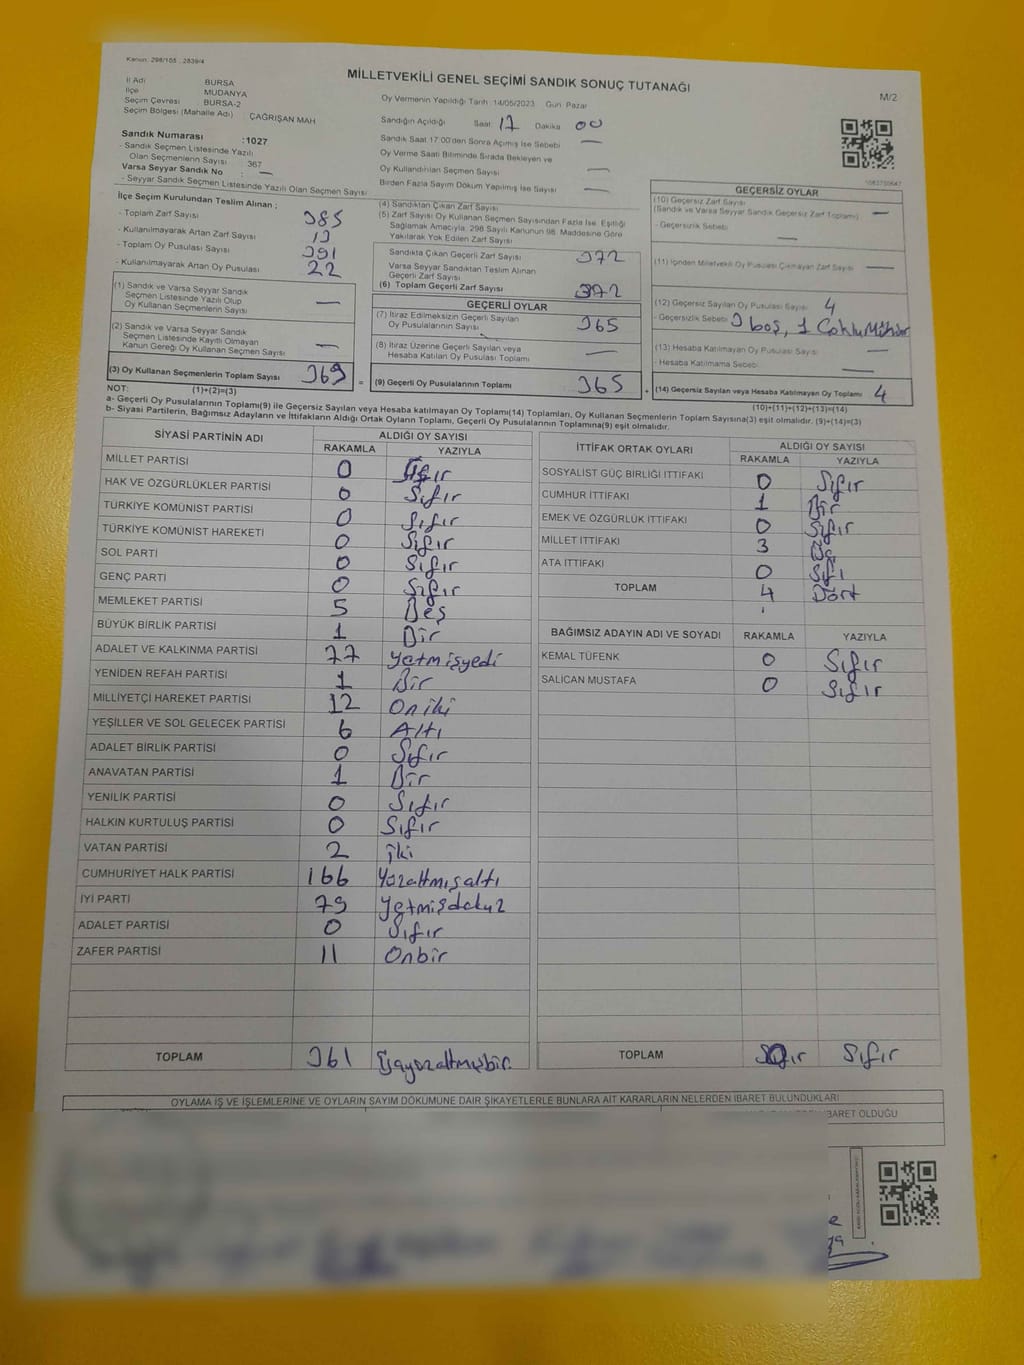 Kanun: 298/105 , 2839/4
MİLLETVEKİLİ GENEL SEÇİMİ SANDIK SONUÇ TUTANAĞI
M/2
İl Adı : BURSA
İlçe : MUDANYA
Seçim Çevresi : BURSA-2
Seçim Bölgesi (Mahalle Adı) : ÇAĞRIŞAN MAH
Sandık Numarası : 1027
- Sandık Seçmen Listesinde Yazılı
Olan Seçmenlerin Sayısı : 367
Varsa Seyyar Sandık No : —
- Seyyar Sandık Seçmen Listesinde Yazılı Olan Seçmen Sayısı
Oy Vermenin Yapıldığı Tarih :14/05/2023 Gün: Pazar
Sandığın Açıldığı Saat: 17 Dakika 00
Sandık Saat 17:00'den Sonra Açılmış İse Sebebi —
Oy Verme Saati Bitiminde Sırada Bekleyen ve
Oy Kullandırılan Seçmen Sayısı —
Birden Fazla Sayım Dökum Yapılmış İse Sayısı —
İlçe Seçim Kurulundan Teslim Alınan ;
- Toplam Zarf Sayısı 385
- Kullanılmayarak Artan Zarf Sayısı 13
- Toplam Oy Pusulası Sayısı 391
- Kullanılmayarak Artan Oy Pusulası 22
(1) Sandık ve Varsa Seyyar Sandık
Seçmen Listesinde Yazılı Olup
Oy Kullanan Seçmenlerin Sayısı —
(2) Sandık ve Varsa Seyyar Sandık
Seçmen Listesinde Kayıtlı Olmayan
Kanun Gereği Oy Kullanan Seçmen Sayısı —
(3) Oy Kullanan Seçmenlerin Toplam Sayısı 369
(1)+(2)=(3)
(4) Sandıktan Çıkan Zarf Sayısı
(5) Zarf Sayısı Oy Kullanan Seçmen Sayısından Fazla İse, Eşitliği
Sağlamak Amacıyla, 298 Sayılı Kanunun 98. Maddesine Göre
Yakılarak Yok Edilen Zarf Sayısı
Sandıkta Çıkan Geçerli Zarf Sayısı 372
Varsa Seyyar Sandıktan Teslim Alınan
Geçerli Zarf Sayısı
(6) Toplam Geçerli Zarf Sayısı 372
GEÇERLİ OYLAR
(7) İtiraz Edilmeksizin Geçerli Sayılan
Oy Pusulalarının Sayısı 365
(8) İtiraz Üzerine Geçerli Sayılan veya
Hesaba Katılan Oy Pusulası Toplamı —
= (9) Geçerli Oy Pusulalarının Toplamı 365
1082755647
GEÇERSİZ OYLAR
(10) Geçersiz Zarf Sayısı
(Sandık ve Varsa Seyyar Sandık Geçersiz Zarf Toplamı) —
- Geçersizlik Sebebi —
(11) İçinden Milletvekili Oy Pusulası Çıkmayan Zarf Sayısı —
(12) Geçersiz Sayılan Oy Pusulası Sayısı 4
- Geçersizlik Sebebi 3 boş, 1 Çoklu Mühür
(13) Hesaba Katılmayan Oy Pusulası Sayısı —
- Hesaba Katılmama Sebebi —
+ (14) Geçersiz Sayılan veya Hesaba Katılmayan Oy Toplamı 4
(10)+(11)+(12)+(13)=(14)
NOT:
a- Geçerli Oy Pusulaları Toplamı(9) ile Geçersiz Sayılan veya Hesaba katılmayan Oy Toplamı(14) Toplamları, Oy Kullanan Seçmenlerin Toplam Sayısına(3) eşit olmalıdır. (9)+(14)=(3)
b- Siyasi Partilerin, Bağımsız Adayların ve İttifakların Aldığı Ortak Oyların Toplamı, Geçerli Oy Pusulalarının Toplamına(9) eşit olmalıdır.
SİYASİ PARTİNİN ADI ALDIĞI OY SAYISI
RAKAMLA YAZIYLA
MİLLET PARTİSİ 0 Sıfır
HAK VE ÖZGÜRLÜKLER PARTİSİ 0 Sıfır
TÜRKİYE KOMÜNİST PARTİSİ 0 Sıfır
TÜRKİYE KOMÜNİST HAREKETİ 0 Sıfır
SOL PARTİ 0 Sıfır
GENÇ PARTİ 0 Sıfır
MEMLEKET PARTİSİ 5 Beş
BÜYÜK BİRLİK PARTİSİ 1 Bir
ADALET VE KALKINMA PARTİSİ 77 yetmişyedi
YENİDEN REFAH PARTİSİ 1 Bir
MİLLİYETÇİ HAREKET PARTİSİ 12 Oniki
YEŞİLLER VE SOL GELECEK PARTİSİ 6 Altı
ADALET BİRLİK PARTİSİ 0 Sıfır
ANAVATAN PARTİSİ 1 Bir
YENİLİK PARTİSİ 0 Sıfır
HALKIN KURTULUŞ PARTİSİ 0 Sıfır
VATAN PARTİSİ 2 iki
CUMHURİYET HALK PARTİSİ 166 Yüzaltmışaltı
İYİ PARTİ 79 Yetmişdokuz
ADALET PARTİSİ 0 Sıfır
ZAFER PARTİSİ 11 Onbir
TOPLAM 361 Üçyüzaltmışbir.
İTTİFAK ORTAK OYLARI ALDIĞI OY SAYISI
RAKAMLA YAZIYLA
SOSYALİST GÜÇ BİRLİĞİ İTTİFAKI 0 Sıfır
CUMHUR İTTİFAKI 1 Bir
EMEK VE ÖZGÜRLÜK İTTİFAKI 0 Sıfır
MİLLET İTTİFAKI 3 Üç
ATA İTTİFAKI 0 Sıfı
TOPLAM 4 Dört
BAĞIMSIZ ADAYIN ADI VE SOYADI RAKAMLA YAZIYLA
KEMAL TÜFENK 0 Sıfır
SALİCAN MUSTAFA 0 Sıfır
TOPLAM 0 Sıfır
OYLAMA İŞ VE İŞLEMLERİNE VE OYLARIN SAYIM DÖKÜMÜNE DAİR ŞİKAYETLERLE BUNLARA AİT KARARLARIN NELERDEN İBARET BULUNDUKLARI
İBARET OLDUĞU